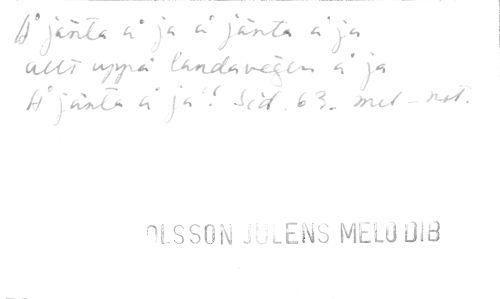 Å jänta å ja å jänta å ja
allt uppå landavägen å ja
Å jänta å ja". Sid. 63. mel-not.
OLSSON JULENS MELODIB